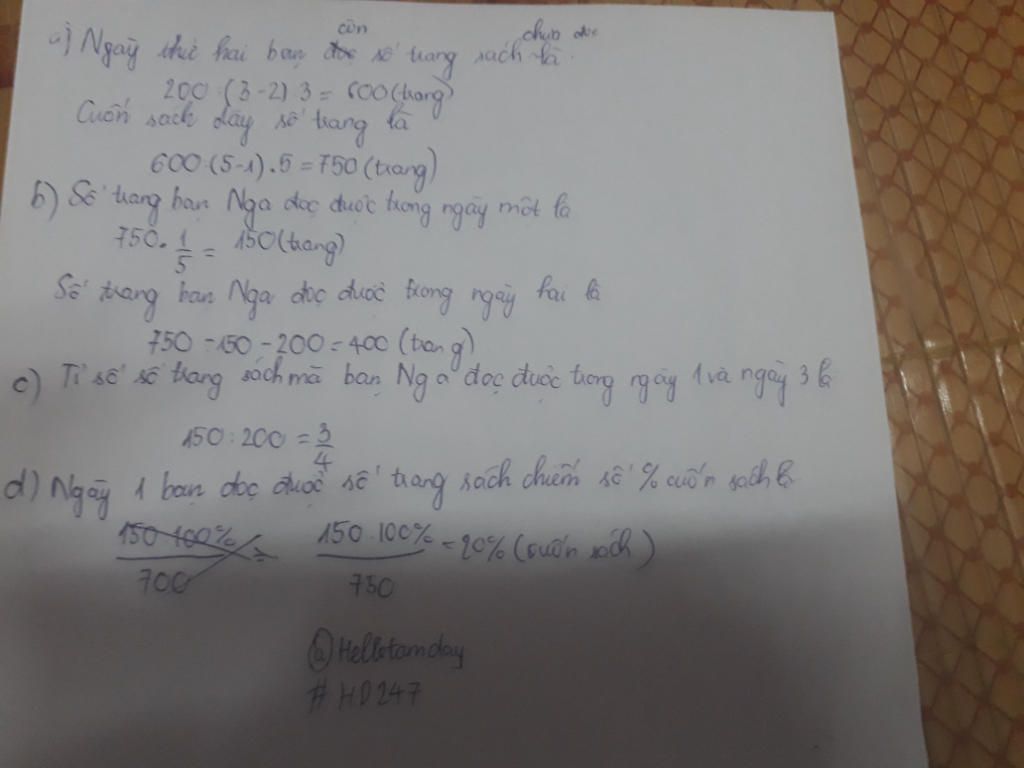 a) Ngày thứ hai bạn còn số trang sách chưa đọc là
200 : (3-2) . 3 = 600 (trang)
Cuốn sách dày số trang là
600 : (5-1) . 5 = 750 (trang)
b) Số trang bạn Nga đọc được trong ngày một là
750 . 1/5 = 150 (trang)
Số trang bạn Nga đọc được trong ngày hai là
750 - 150 - 200 = 400 (trang)
c) Tỉ số số trang sách mà bạn Nga đọc được trong ngày 1 và ngày 3 là
150 : 200 = 3/4
d) Ngày 1 bạn đọc được số trang sách chiếm số % cuốn sách là
150 . 100% / 700 = 150 . 100% / 750 = 20% (cuốn sách)
@Hellotamday
# HD247